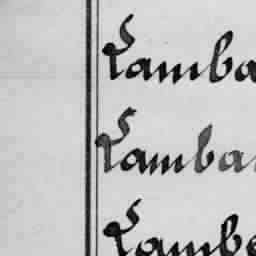 Lamba
Lambar
Lambe